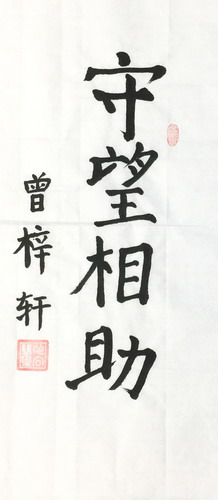 守望相助
曾梓轩